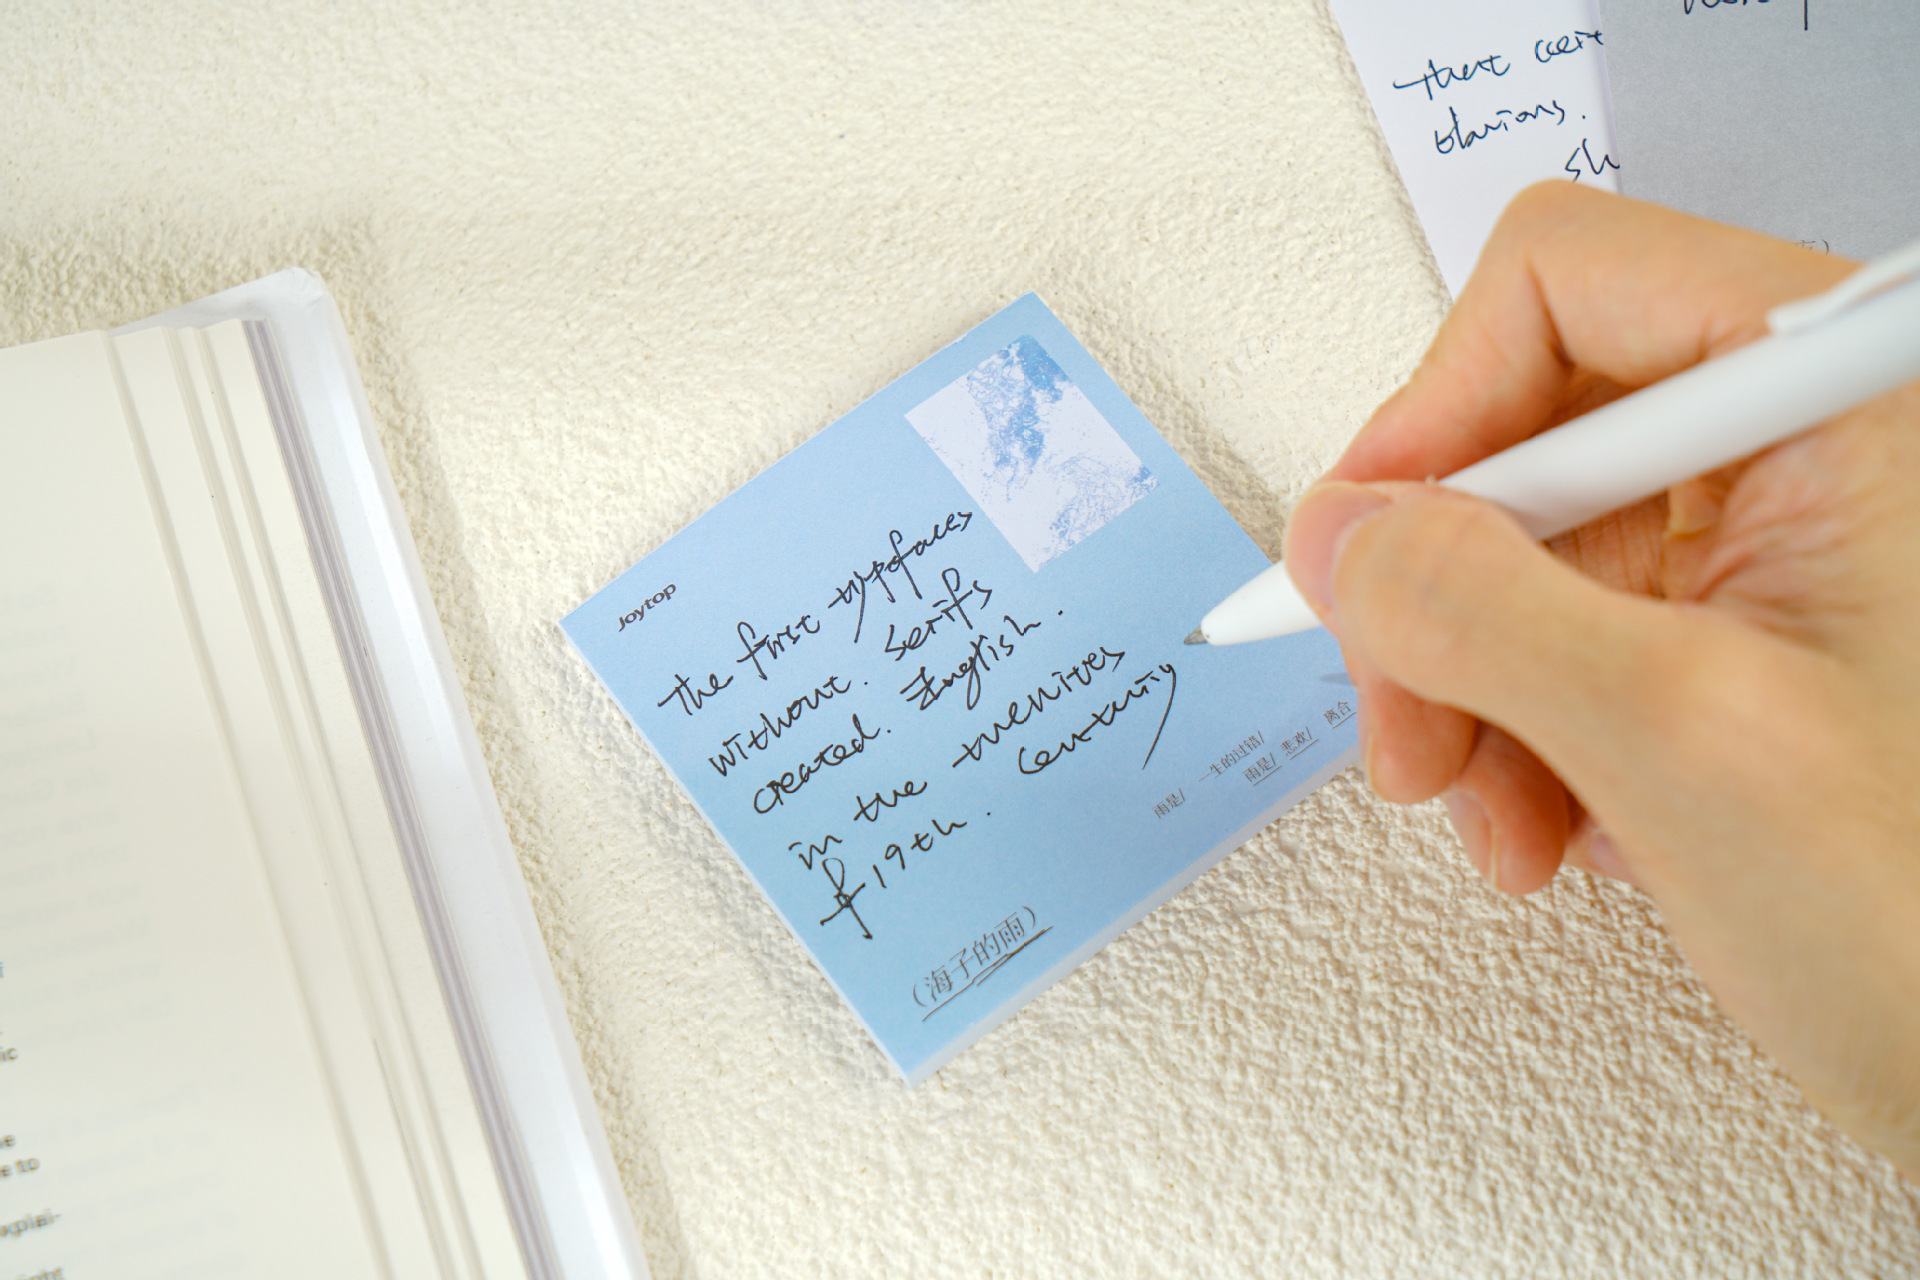 Joytop
The first typefaces
without. serifs
created. English.
in the twenities
19th. century
雨是/ 一生的过错/
雨是/ 悲欢/ 离合
(海子的雨)
that
sh
ic
e
e to
xplai-
ight